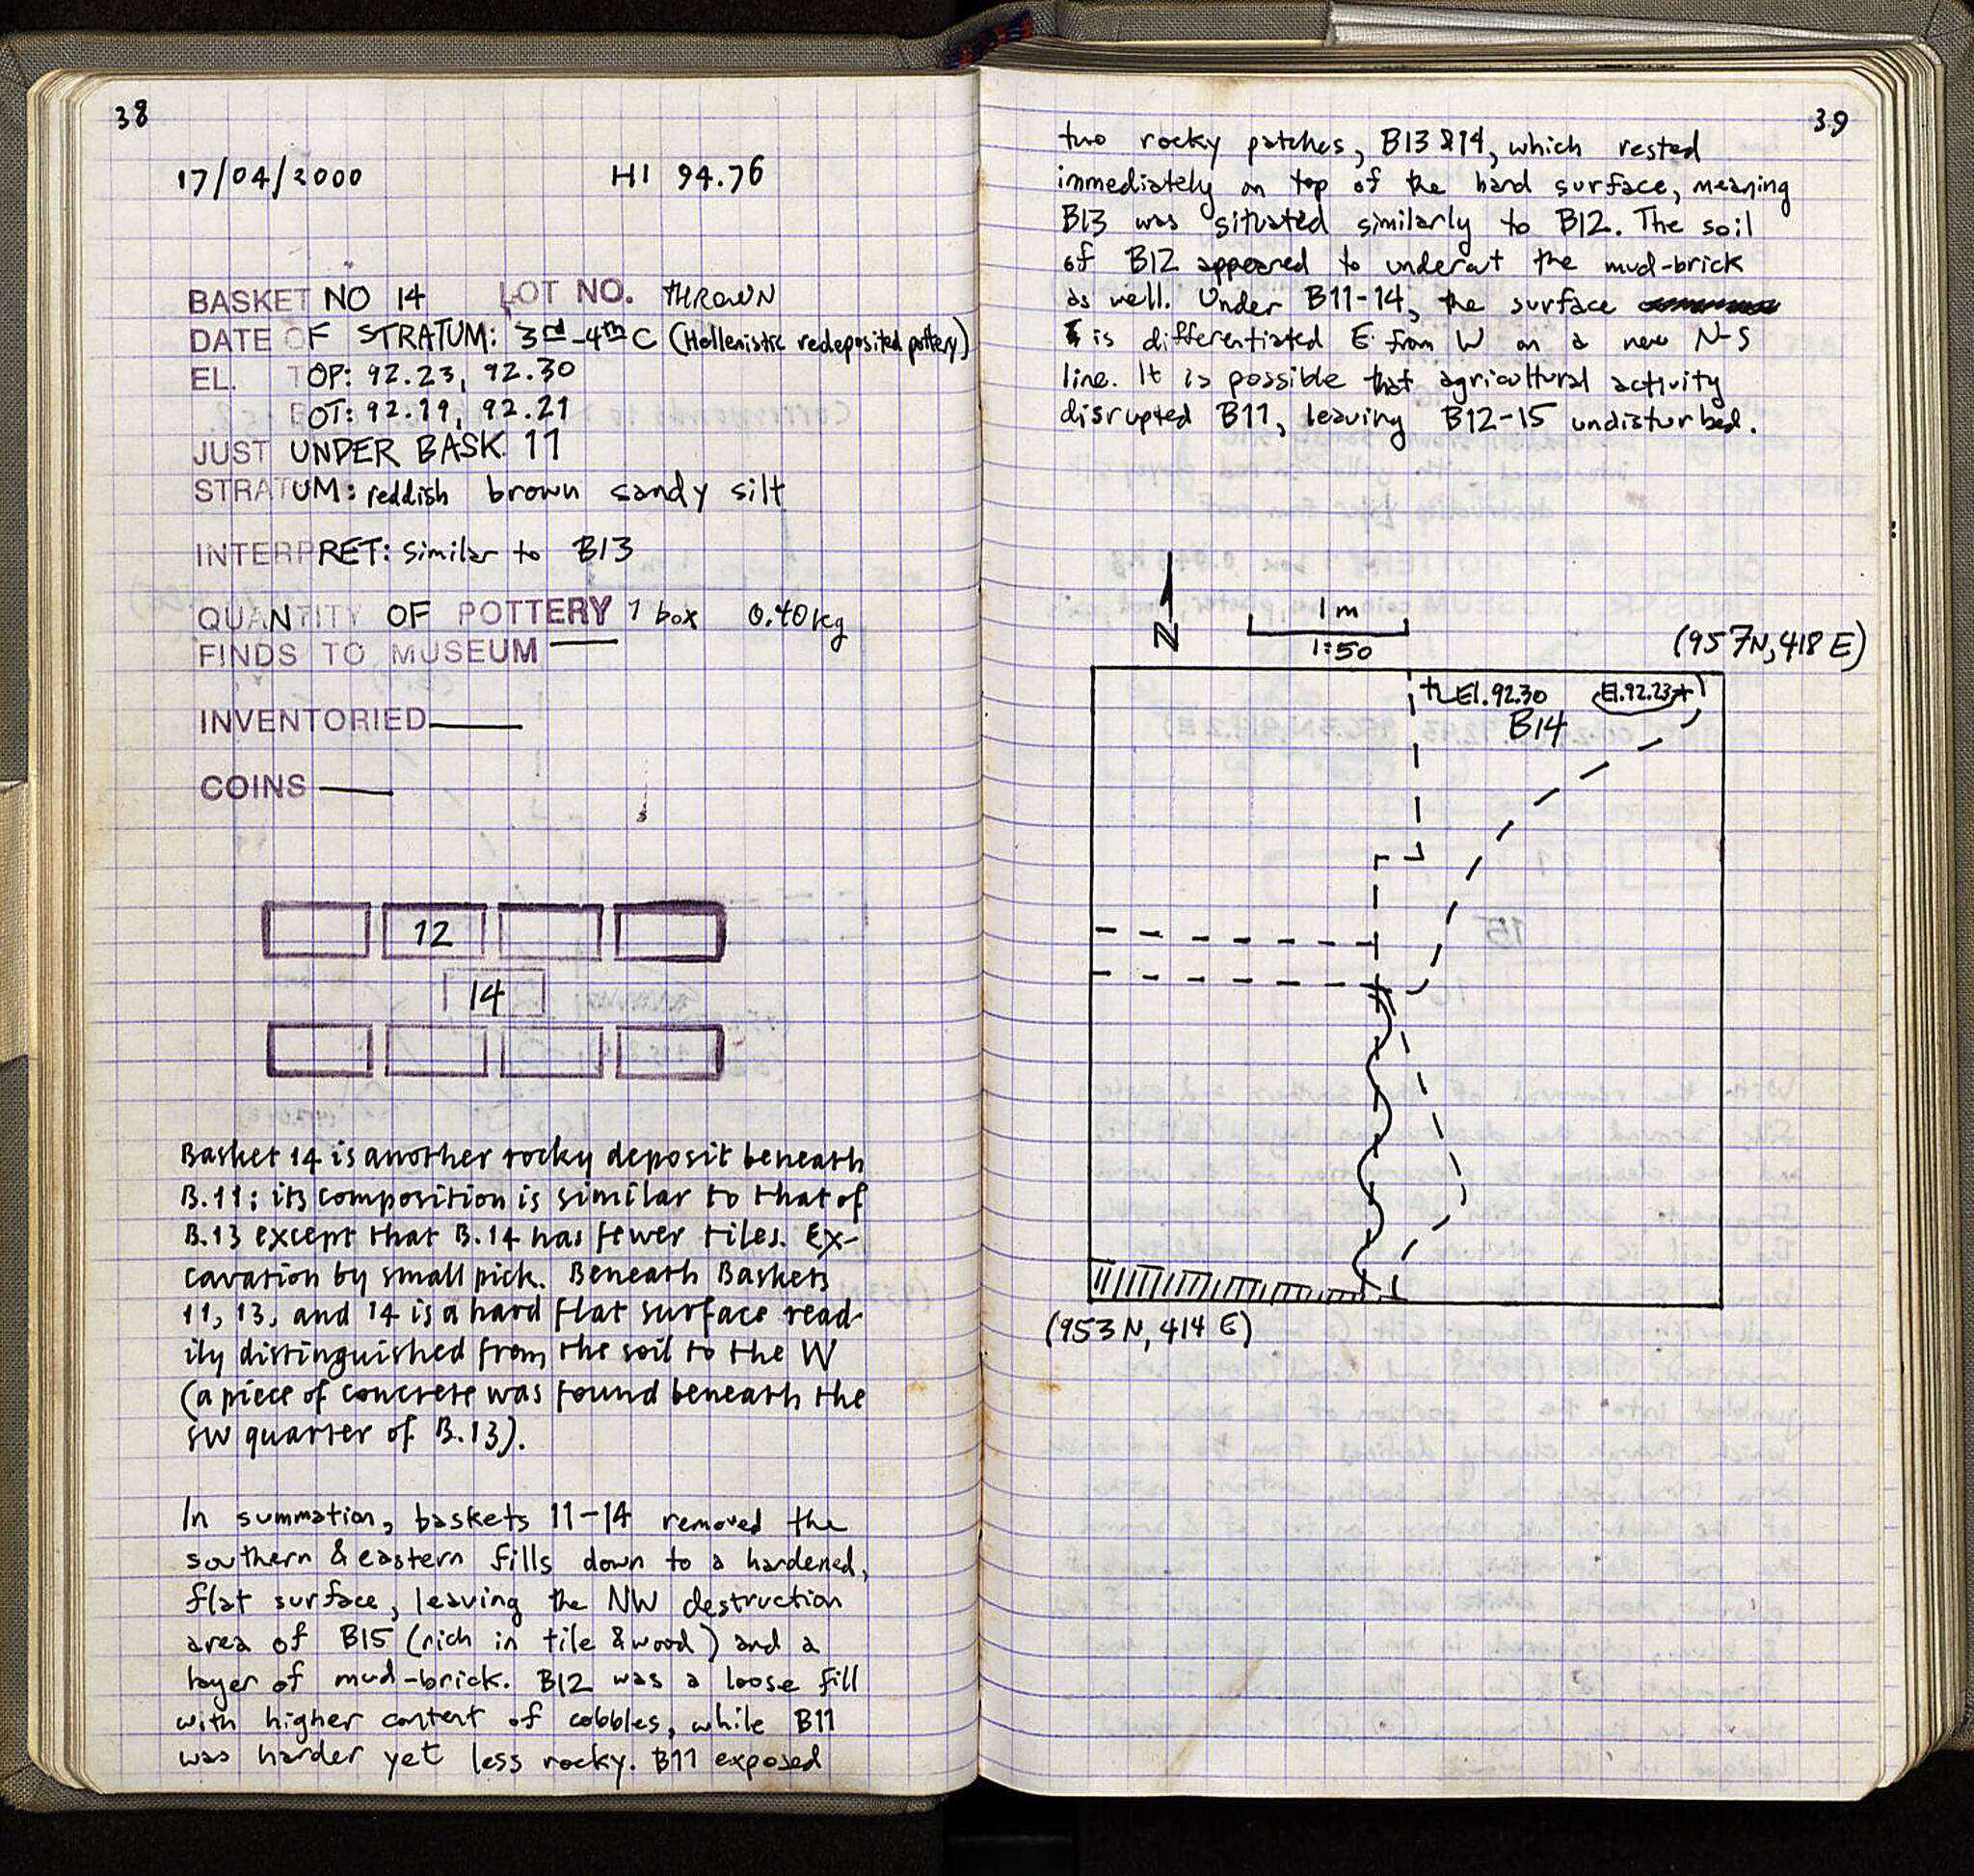 38
17/04/2000 HI 94.76
BASKET NO 14 LOT NO. THROWN
DATE OF STRATUM: 3rd-4th C (Hellenistic redeposited pottery)
EL. TOP: 92.23, 92.30
BOT: 92.19, 92.21
JUST UNDER BASK. 11
STRATUM: reddish brown sandy silt
INTERPRET: Similar to B13
QUANTITY OF POTTERY 1 box 0.40kg
FINDS TO MUSEUM —
INVENTORIED —
COINS —
12
14
Basket 14 is another rocky deposit beneath
B.11; its composition is similar to that of
B.13 except that B.14 has fewer tiles. Ex-
cavation by small pick. Beneath Baskets
11, 13, and 14 is a hard flat surface read-
ily distinguished from the soil to the W
(a piece of concrete was found beneath the
SW quarter of B.13).
In summation, baskets 11-14 removed the
southern & eastern fills down to a hardened,
flat surface, leaving the NW destruction
area of B15 (rich in tile & wood) and a
layer of mud-brick. B12 was a loose fill
with higher content of cobbles, while B11
was harder yet less rocky. B11 exposed
39
two rocky patches, B13 & 14, which rested
immediately on top of the hard surface, meaning
B13 was situated similarly to B12. The soil
of B12 appeared to undercut the mud-brick
as well. Under B11-14, the surface
is differentiated E from W on a new N-S
line. It is possible that agricultural activity
disrupted B11, leaving B12-15 undisturbed.
N
1 m
1:50
(957N, 418 E)
El. 92.30 El. 92.23
B14
(953 N, 414 E)